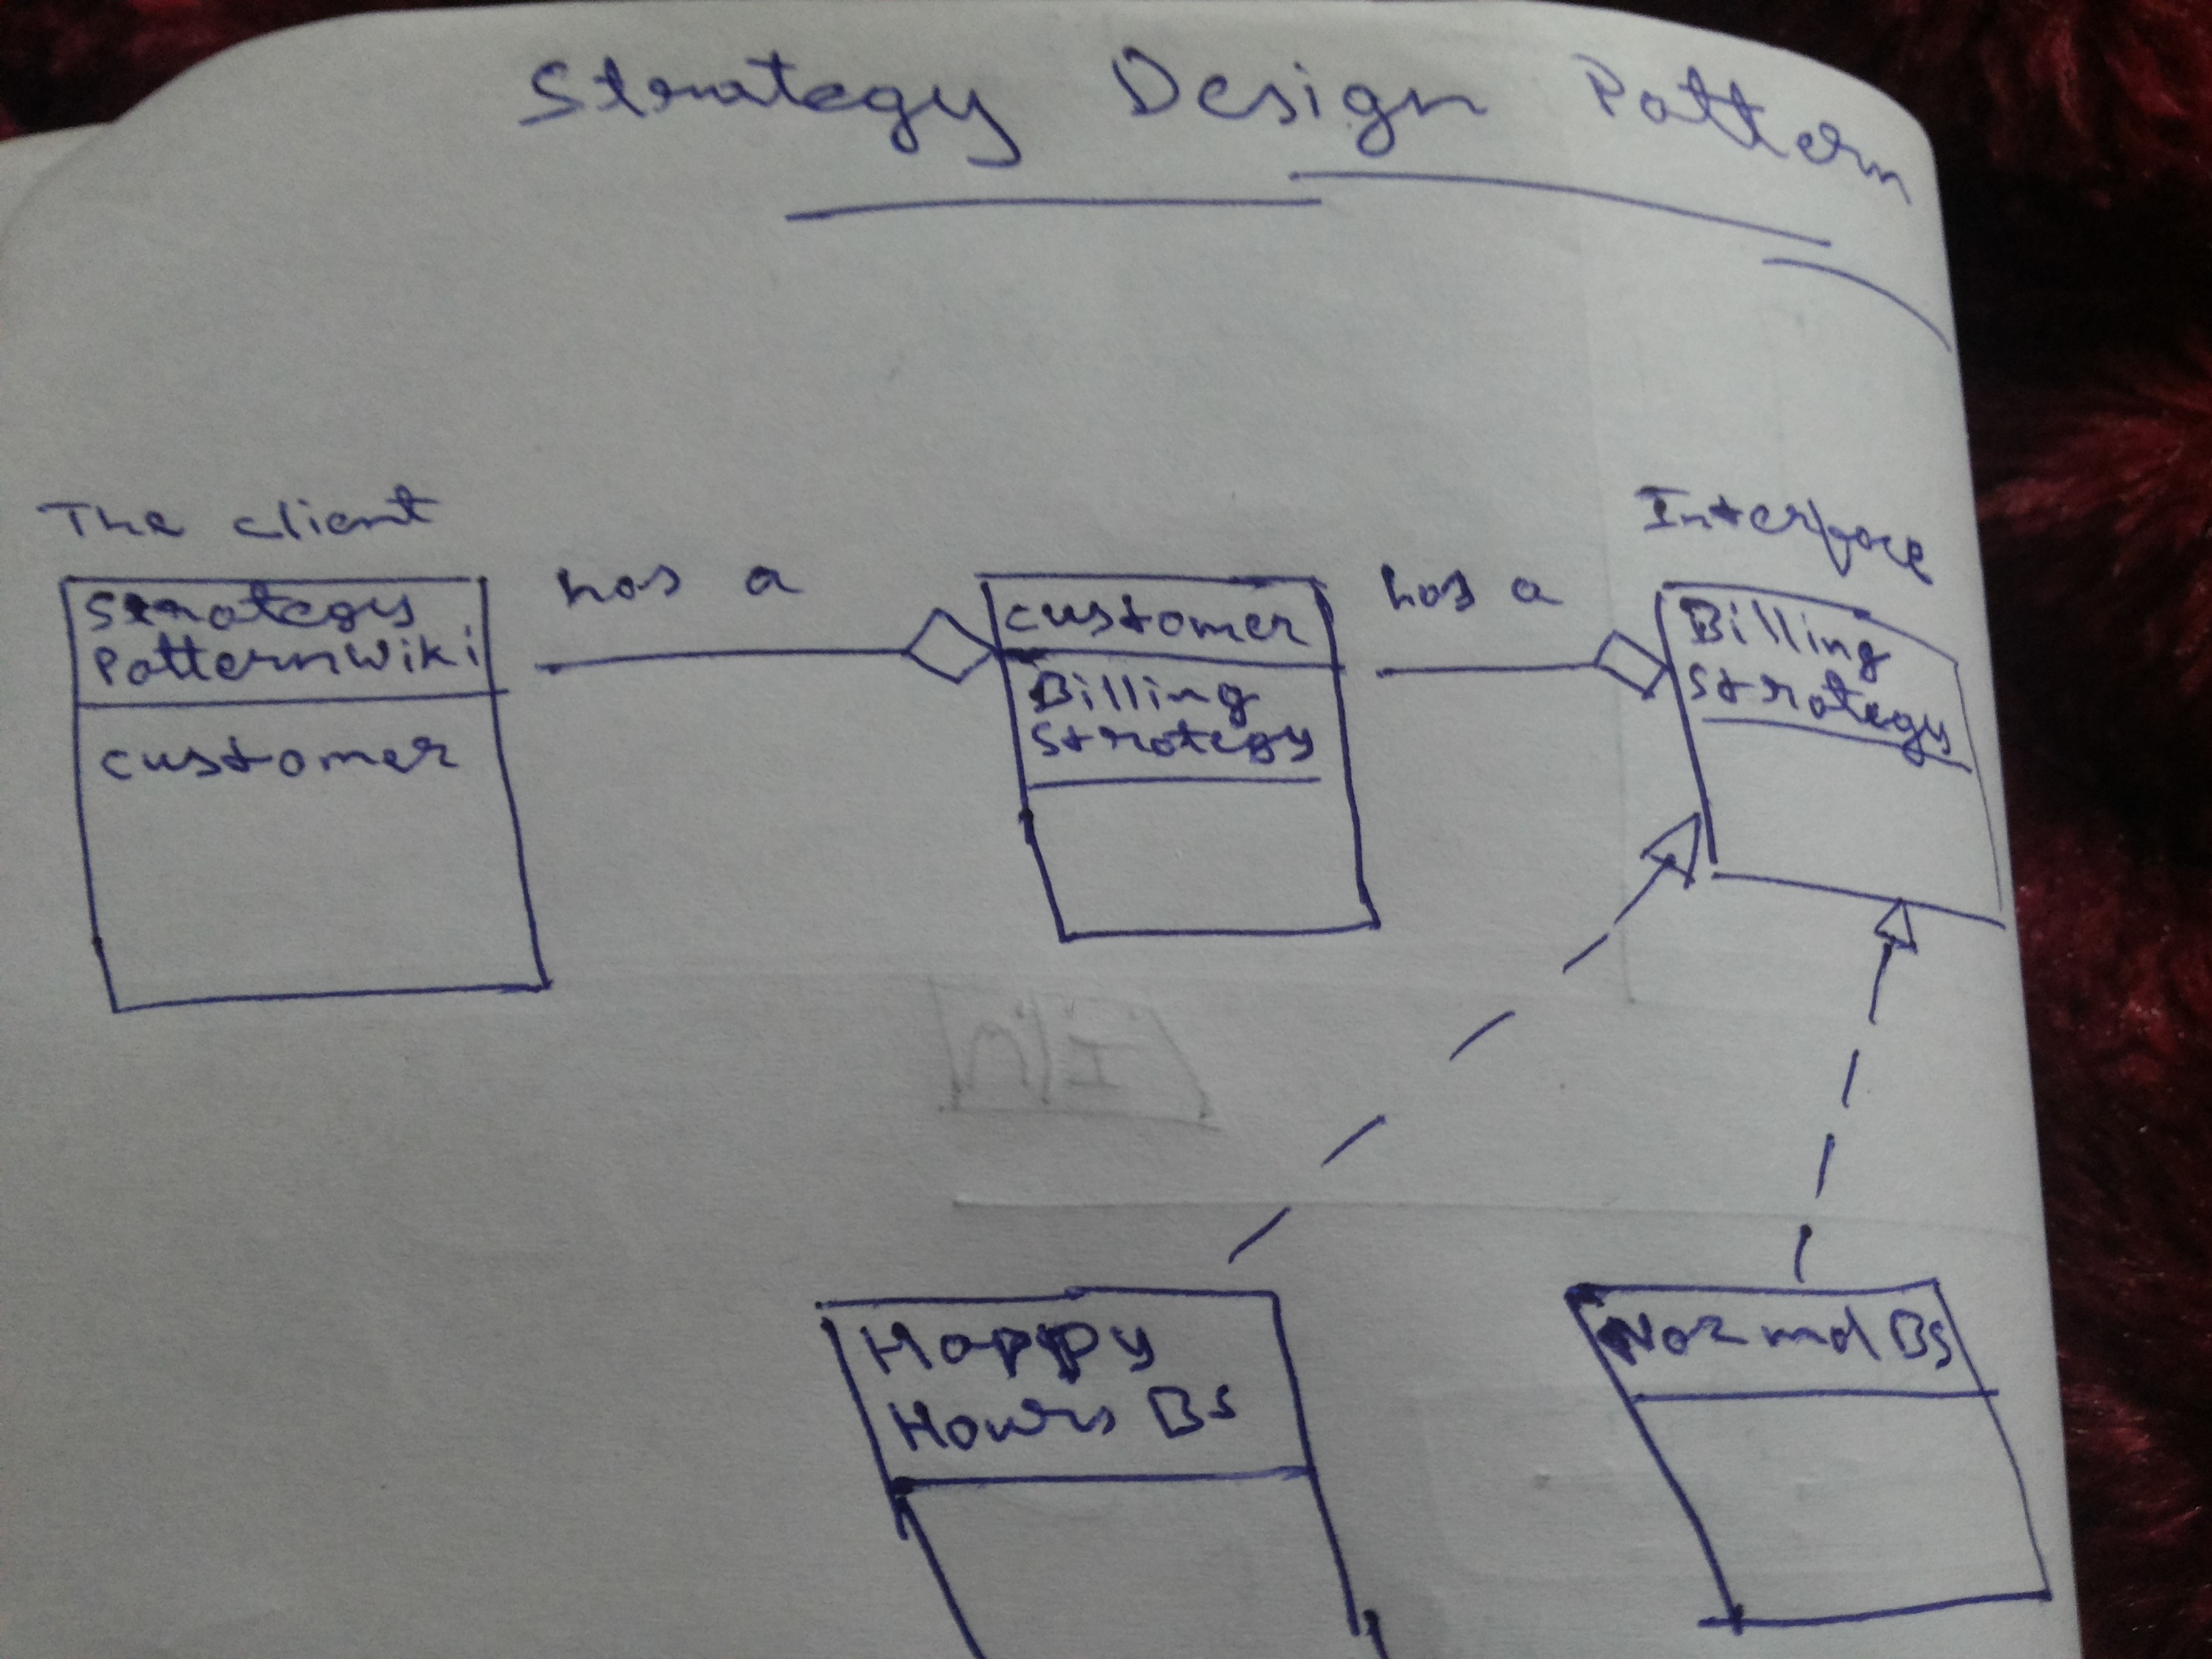 Strategy Design Pattern
The client
Strategy
PatternWiki
customer
has a
customer
Billing
Strategy
has a
Interface
Billing
Strategy
Happy
Hours BS
Normal BS